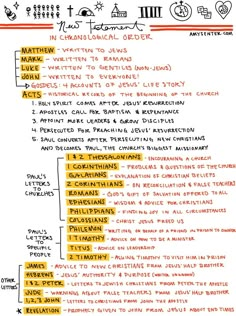 New Testament
IN CHRONOLOGICAL ORDER
AMYSENTER.COM
MATTHEW - WRITTEN TO JEWS
MARK - WRITTEN TO ROMANS
LUKE - WRITTEN TO GENTILES (NON-JEWS)
JOHN - WRITTEN TO EVERYONE!
GOSPELS: 4 ACCOUNTS OF JESUS' LIFE STORY
ACTS - HISTORICAL RECORDS OF THE BEGINNING OF THE CHURCH
1. HOLY SPIRIT COMES AFTER JESUS' RESURRECTION
2. APOSTLES CALL FOR BAPTISM & REPENTANCE
3. APPOINT MORE LEADERS & GROW DISCIPLES
4. PERSECUTED FOR PREACHING JESUS' RESURRECTION
5. PAUL CONVERTS AFTER PERSECUTING NEW CHRISTIANS
AND BECOMES PAUL, THE CHURCH'S BIGGEST MISSIONARY
PAUL'S LETTERS TO CHURCHES
1 & 2 THESSALONIANS - ENCOURAGING A CHURCH
1 CORINTHIANS - PROBLEMS & QUESTIONS OF THE CHURCH
GALATIANS - EXPLANATION OF CHRISTIAN BELIEFS
2 CORINTHIANS - ON RECONCILIATION & FALSE TEACHERS
ROMANS - GOD'S GIFT OF SALVATION OFFERED TO ALL
EPHESIANS - WISDOM & ADVICE FOR CHRISTIANS
PHILIPPIANS - FINDING JOY IN ALL CIRCUMSTANCES
COLOSSIANS - CHRIST JESUS FREED US
PAUL'S LETTERS TO SPECIFIC PEOPLE
PHILEMON - WRITTEN ON BEHALF OF A FRIEND IN PRISON TO OWNER
1 TIMOTHY - ADVICE ON HOW TO BE A MINISTER
TITUS - ADVICE ON LEADERSHIP
2 TIMOTHY - ASKING TIMOTHY TO VISIT HIM IN PRISON
OTHER LETTERS
JAMES - ADVICE TO NEW CHRISTIANS FROM JESUS' HALF BROTHER
HEBREWS - JESUS' AUTHORITY & PURPOSE
1 & 2 PETER - LETTERS TO JEWISH CHRISTIANS FROM PETER THE APOSTLE
JUDE - WARNINGS ABOUT FALSE TEACHERS FROM JESUS' HALF BROTHER
1, 2, 3 JOHN - LETTERS TO CHRISTIANS FROM JOHN THE APOSTLE
REVELATION - PROPHECY GIVEN TO JOHN FROM JESUS ABOUT END TIMES